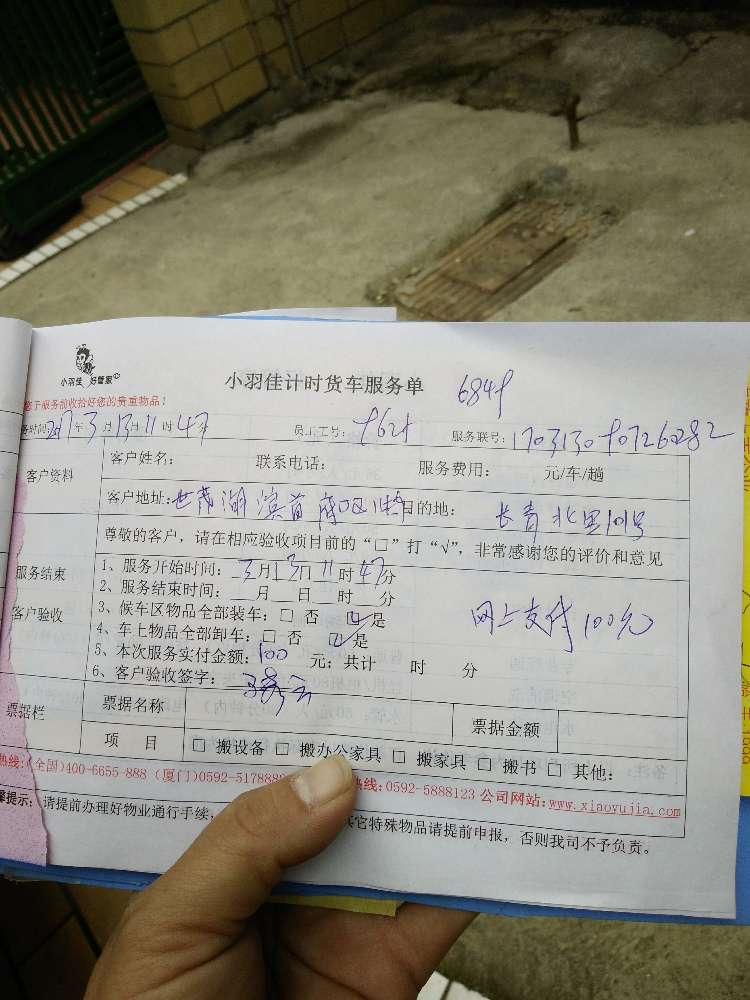 小羽佳 好管家
小羽佳计时货车服务单
于服务前收拾好您的贵重物品!
务时间:2017年3月13日11时47分 员工工号: 服务联号:
客户资料
客户姓名: 联系电话: 服务费用: 元/车/趟
客户地址:世茂湖滨首府 目的地: 长青北里101号
尊敬的客户,请在相应验收项目前的“□”打“√”,非常感谢您的评价和意见
服务结束
客户验收
1、服务开始时间:3月13日11时47分
2、服务结束时间: 月 日 时 分
3、候车区物品全部装车:□ 否 ☑是
4、车上物品全部卸车:□ 否 ☑是
网上支付100元
5、本次服务实付金额:100 元;共计 时 分
6、客户验收签字:
票据栏
票据名称 票据金额
项 目 □ 搬设备 □ 搬办公家具 □ 搬家具 □ 搬书 □ 其他:
热线:(全国)400-6655-888 (厦门)0592-517888 热线:0592-5888123 公司网站:www.xiaoyujia.com
提示:请提前办理好物业通行手续, 其它特殊物品请提前申报,否则我司不予负责。